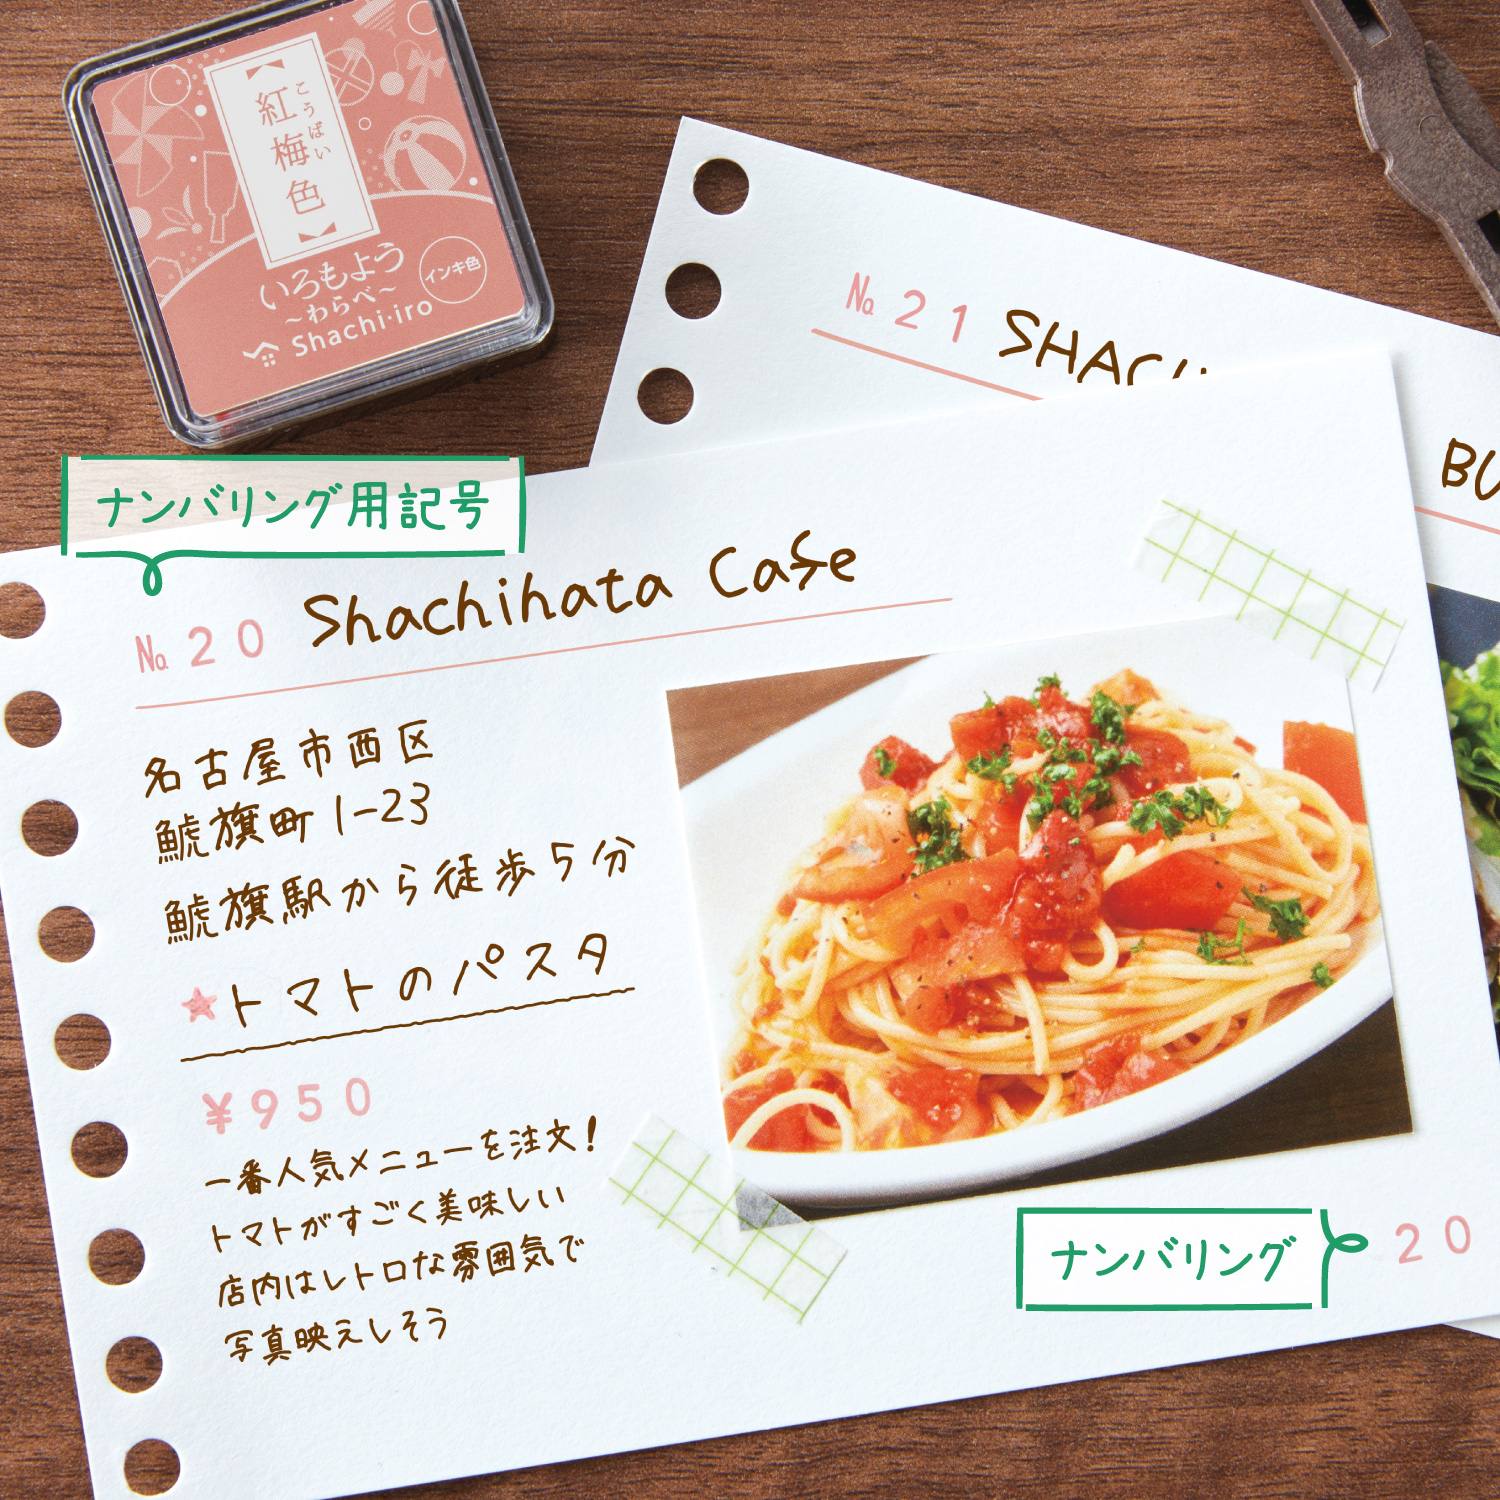 【紅梅色】
こうばい
いろもよう
～わらべ～
インキ色
Shachi・iro
№21
ナンバリング用記号
№20 Shachihata Cafe
名古屋市西区
鯱旗町1-23
鯱旗駅から徒歩5分
★トマトのパスタ
¥950
一番人気メニューを注文!
トマトがすごく美味しい
店内はレトロな雰囲気で
写真映えしそう
ナンバリング
20